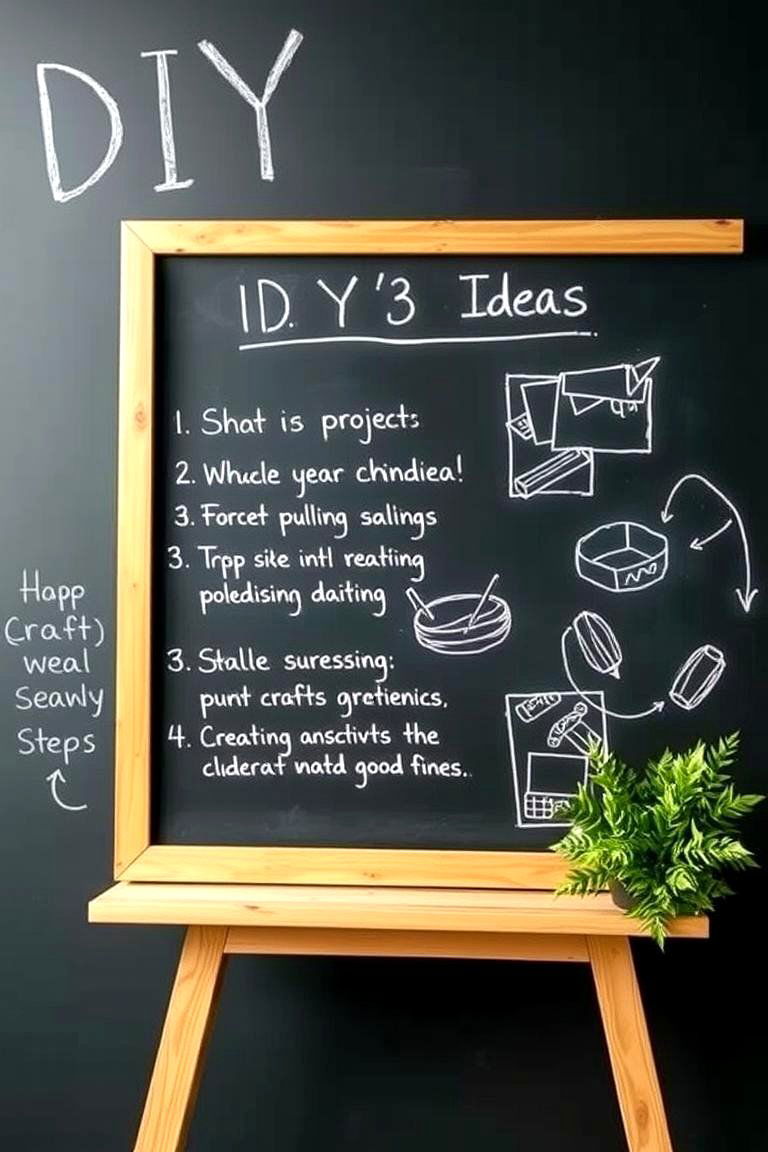 DIY
1D. Y'3 Ideas
1. Shat is projects
2. Whucle year chindiea!
3. Forcet pulling salings
3. Trpp site intl reatiing
poledising daiting
3. Stalle suressing:
punt crafts gretienics.
4. Creating ansctivts the
cliderat natd good fines.
Happ
(raft)
weal
Seawly
Steps